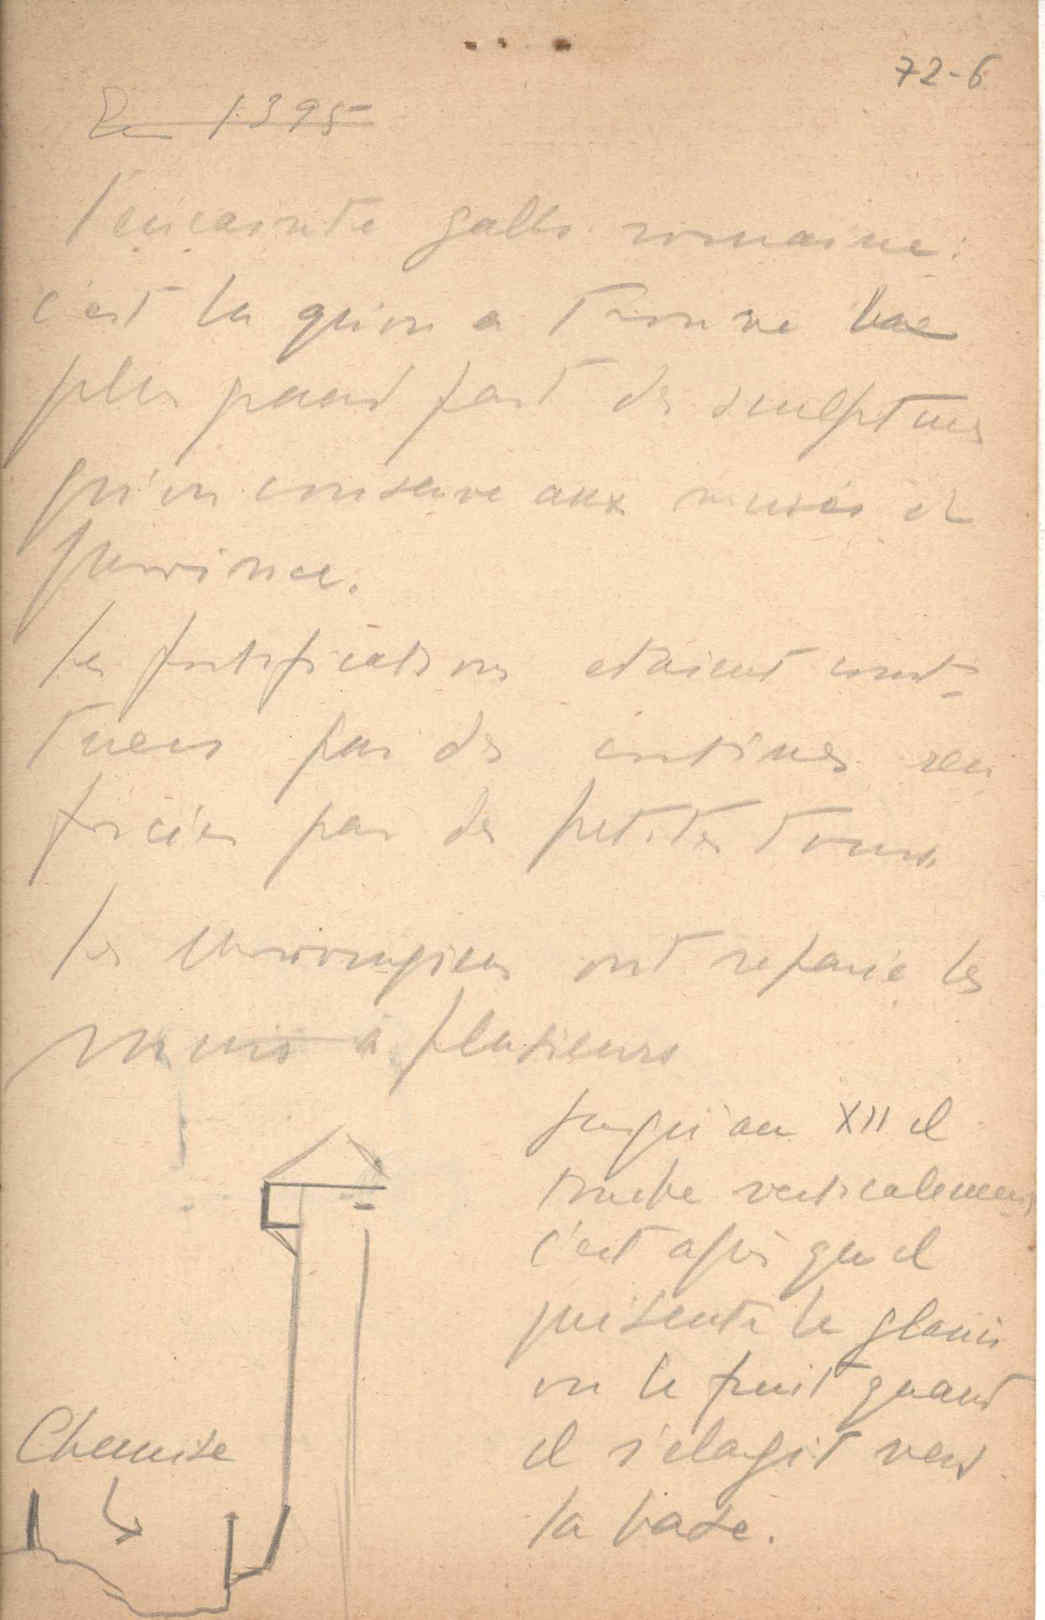 72-6
En 1395
l'encainte gallo romaine:
c'est la qu'on a trouve la
plus grand part des sculptures
qu'on conserve aux musés et
province.
Les fortifications etaient const-
tuees par des cortines ren
forcées par des petites tours
les merovingiens ont reparé les
murs à plusieurs
jusqu'au XII il
tombe verticalement
c'est apres que il
presente le glacis
ou le fruit quand
il s'elargit vers
la base.
Chemise